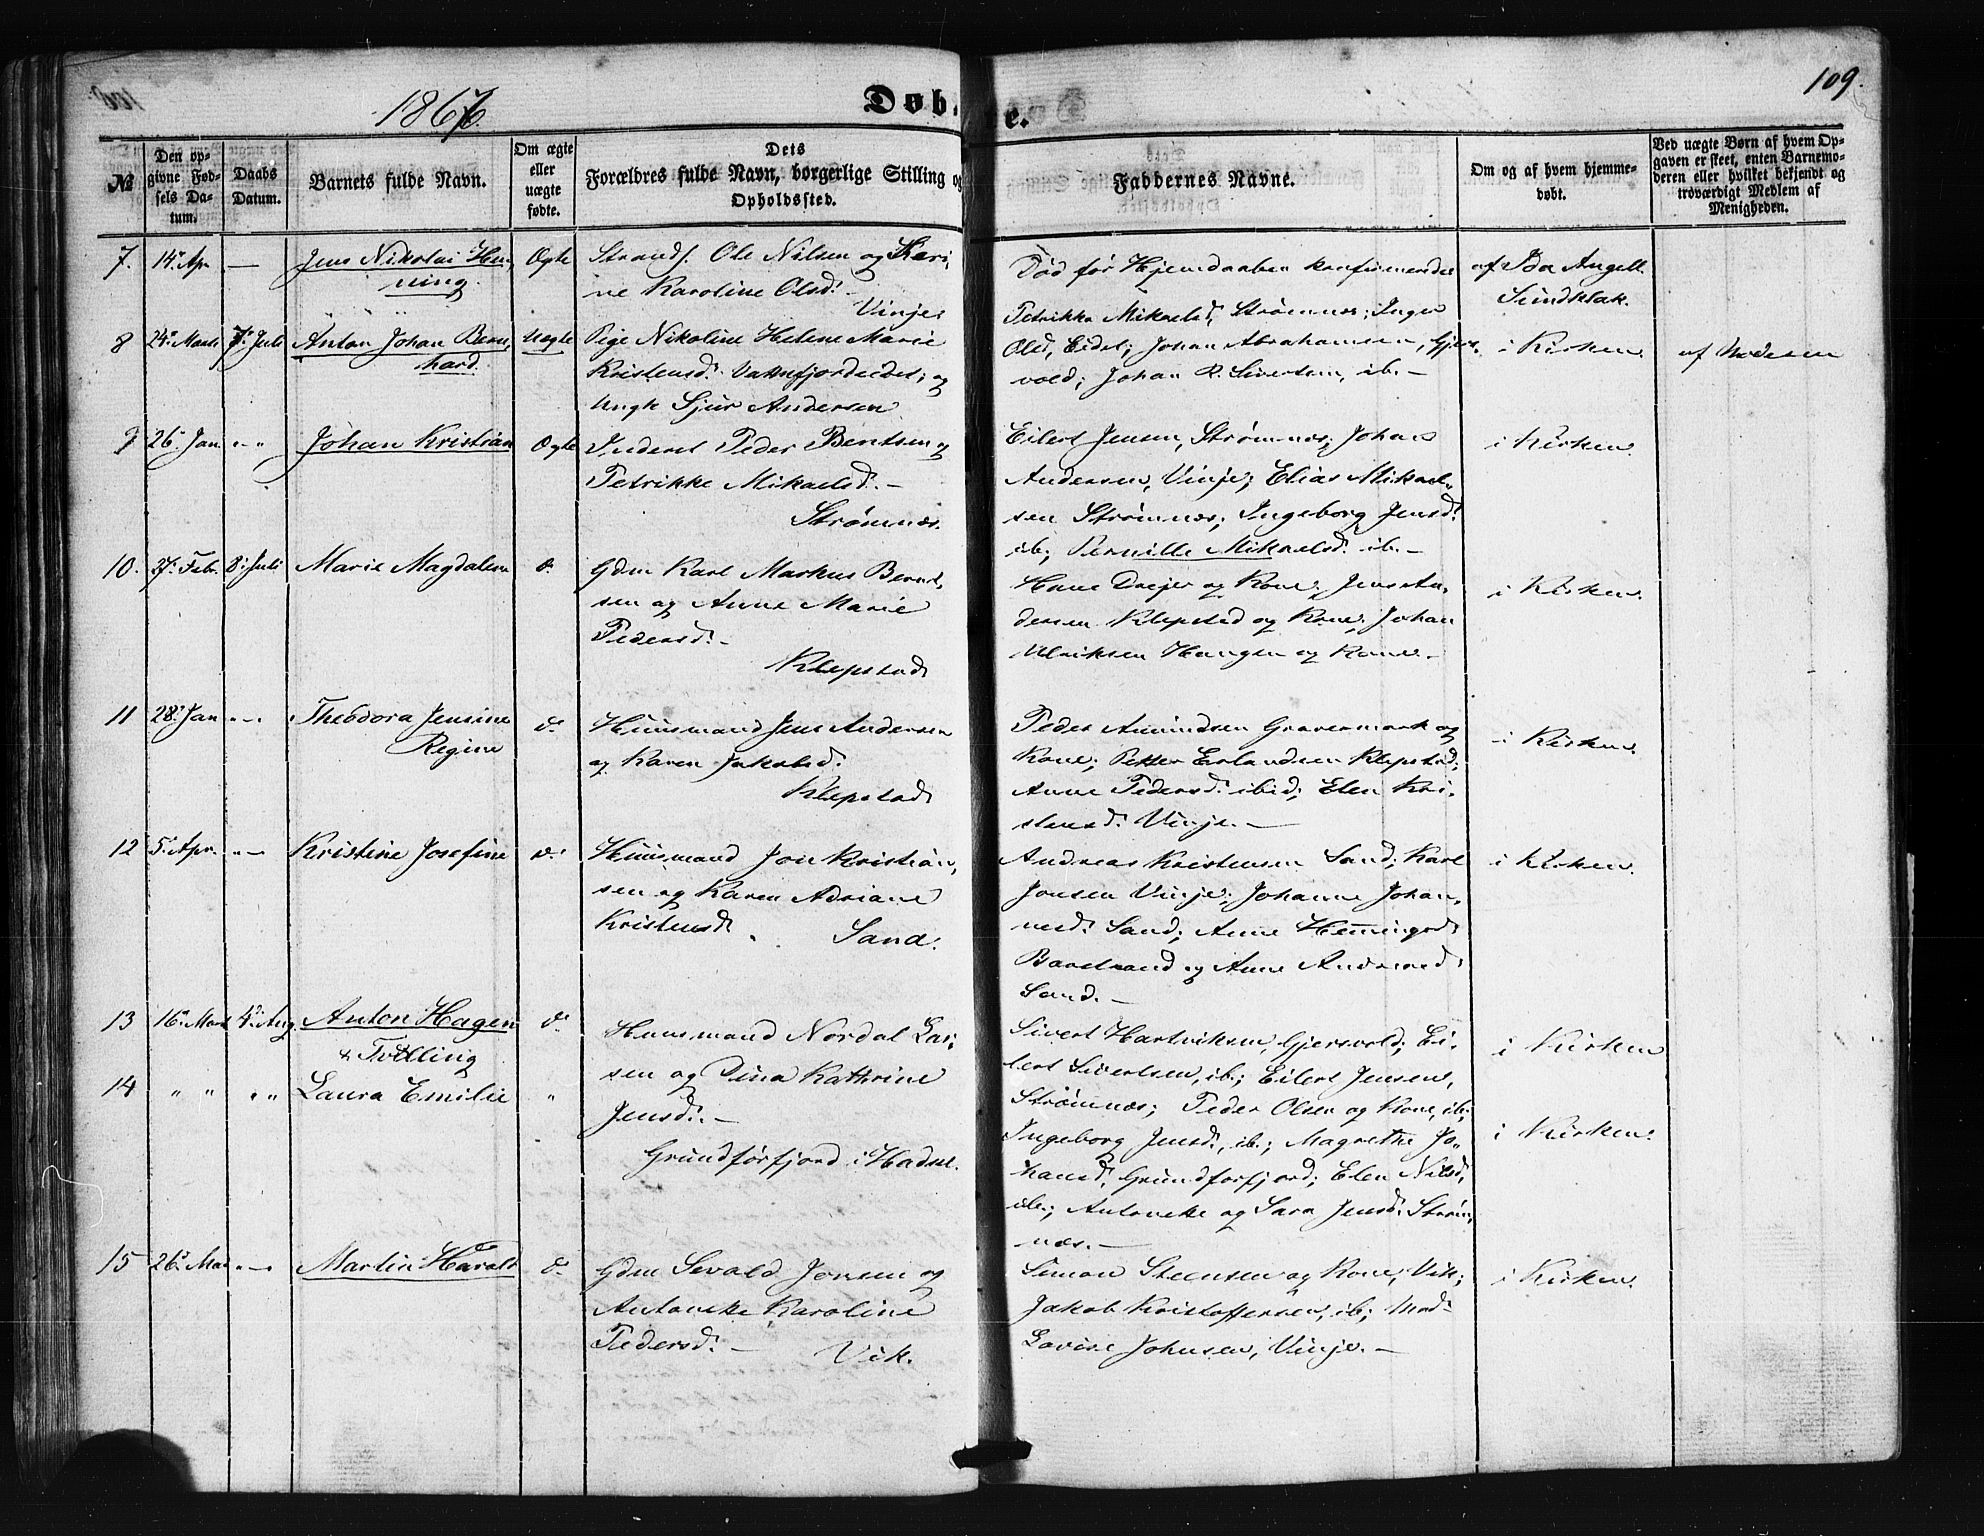 109.
1867.
Døbte.
№
Den opgivne Fødsels Datum.
Daabs Datum.
Barnets fulde Navn.
Om ægte eller uægte fødte.
Dets Forældres fulde Navn, borgerlige Stilling og Opholdssted.
Faddernes Navne.
Om og af hvem hjemmedøbt.
Ved uægte Børn af hvem Opgaven er skeet, enten Barnemoderen eller hvilket bekjendt og troværdigt Medlem af Menigheden.
7. 14. Apr. — Jens Nikolai Hen-
ning.
Ægte
Strands. Ole Nilsen og Kari-
ne Karoline Olsd. —
Vinje.
Død før Hjemdaaben konfirmeredes
af Ida Angell
Sundklak.
8 24. Marts 7. Juli Anton Johan Bern-
hard.
Uægte
Pige Nikoline Helene Marie
Kristensd. Vatnfjordeidet; og
Ungk Sjur Andersen
Petrikke Mikaelsd, Strømnes; Inger
Olsd, Eidet; Johan Abrahamsen, Gjers-
vold; Johan R. Sivertsen, ib. —
i Kirken.
af Moderen
9 26. Jan. „ — „ Johan Kristian
Ægte
Inderst Peder Bentsen og
Petrikke Mikaelsd. —
Strømnæs.
Eilert Jensen, Strømnæs; Johan
Andersen, Vinje; Elias Mikael-
sen Strømnæs; Ingeborg Jensd.
ib; Pernille Mikaelsd. ib. —
i Kirken.
10. 27. Febr. 8. Juli Marie Magdalena
d.
Gdm Karl Markus Bernt-
sen og Anne Marie
Pedersd. —
Klepstad
Hans Drejer og Kone; Jens An-
dersen Klepstad og Kone; Johan
Ulriksen Haugen og Kone. —
i Kirken.
11 28. Jan „ — „ Theodora Jensine
Regine
d.
Huusmand Jens Andersen
og Karen Jakobsd.
Klepstad
Peder Amundsen Gravermark og
Kone; Petter Erlandsen Klepstad;
Anne Pedersd. ibid; Elen Kri-
stensd. Vinje. —
i Kirken.
12 5. Apr. „ — Kristine Josefine
d.
Huusmand Jon Kristian-
sen og Karen Adriane
Kristensd. Sand.
Andreas Kristensen Sand; Karl
Jonsen Vinje; Johanne Johan-
nesd. Sand; Anne Hemmingsd.
Barstrand og Anne Andersd.
Sand. —
i Kirken.
13 16. Marts 4. Aug. Anton Hagen
& Tvilling
d.
Huusmand Nordal Lar-
sen og Dina Kathrine
Jensd. —
Grundforfjord i Hadsel.
Sivert Hartviksen, Gjersvold; Ei-
lert Sivertsen, ib.; Eilert Jensen,
Strømnæs; Peder Olsen og Kone, ib.
i Kirken
14 „ „ „ „ Laura Emilie „
Ingeborg Jensd, ib.; Magrethe Jo-
hansd, Grundforfjord; Elen Nilsd,
ib.; Antoneke og Sara Jensd. Strøm-
næs. —
i Kirken.
15 26. Mai „ — „ Martin Harald
d.
Gdm Sevald Jonsen og
Antoneke Karoline
Pedersd. — Vik.
Simon Steensen og Kone, Vik;
Jakob Kristoffersen, ib; Mad.
Lovise Johnsen, Vinje. —
i Kirken.